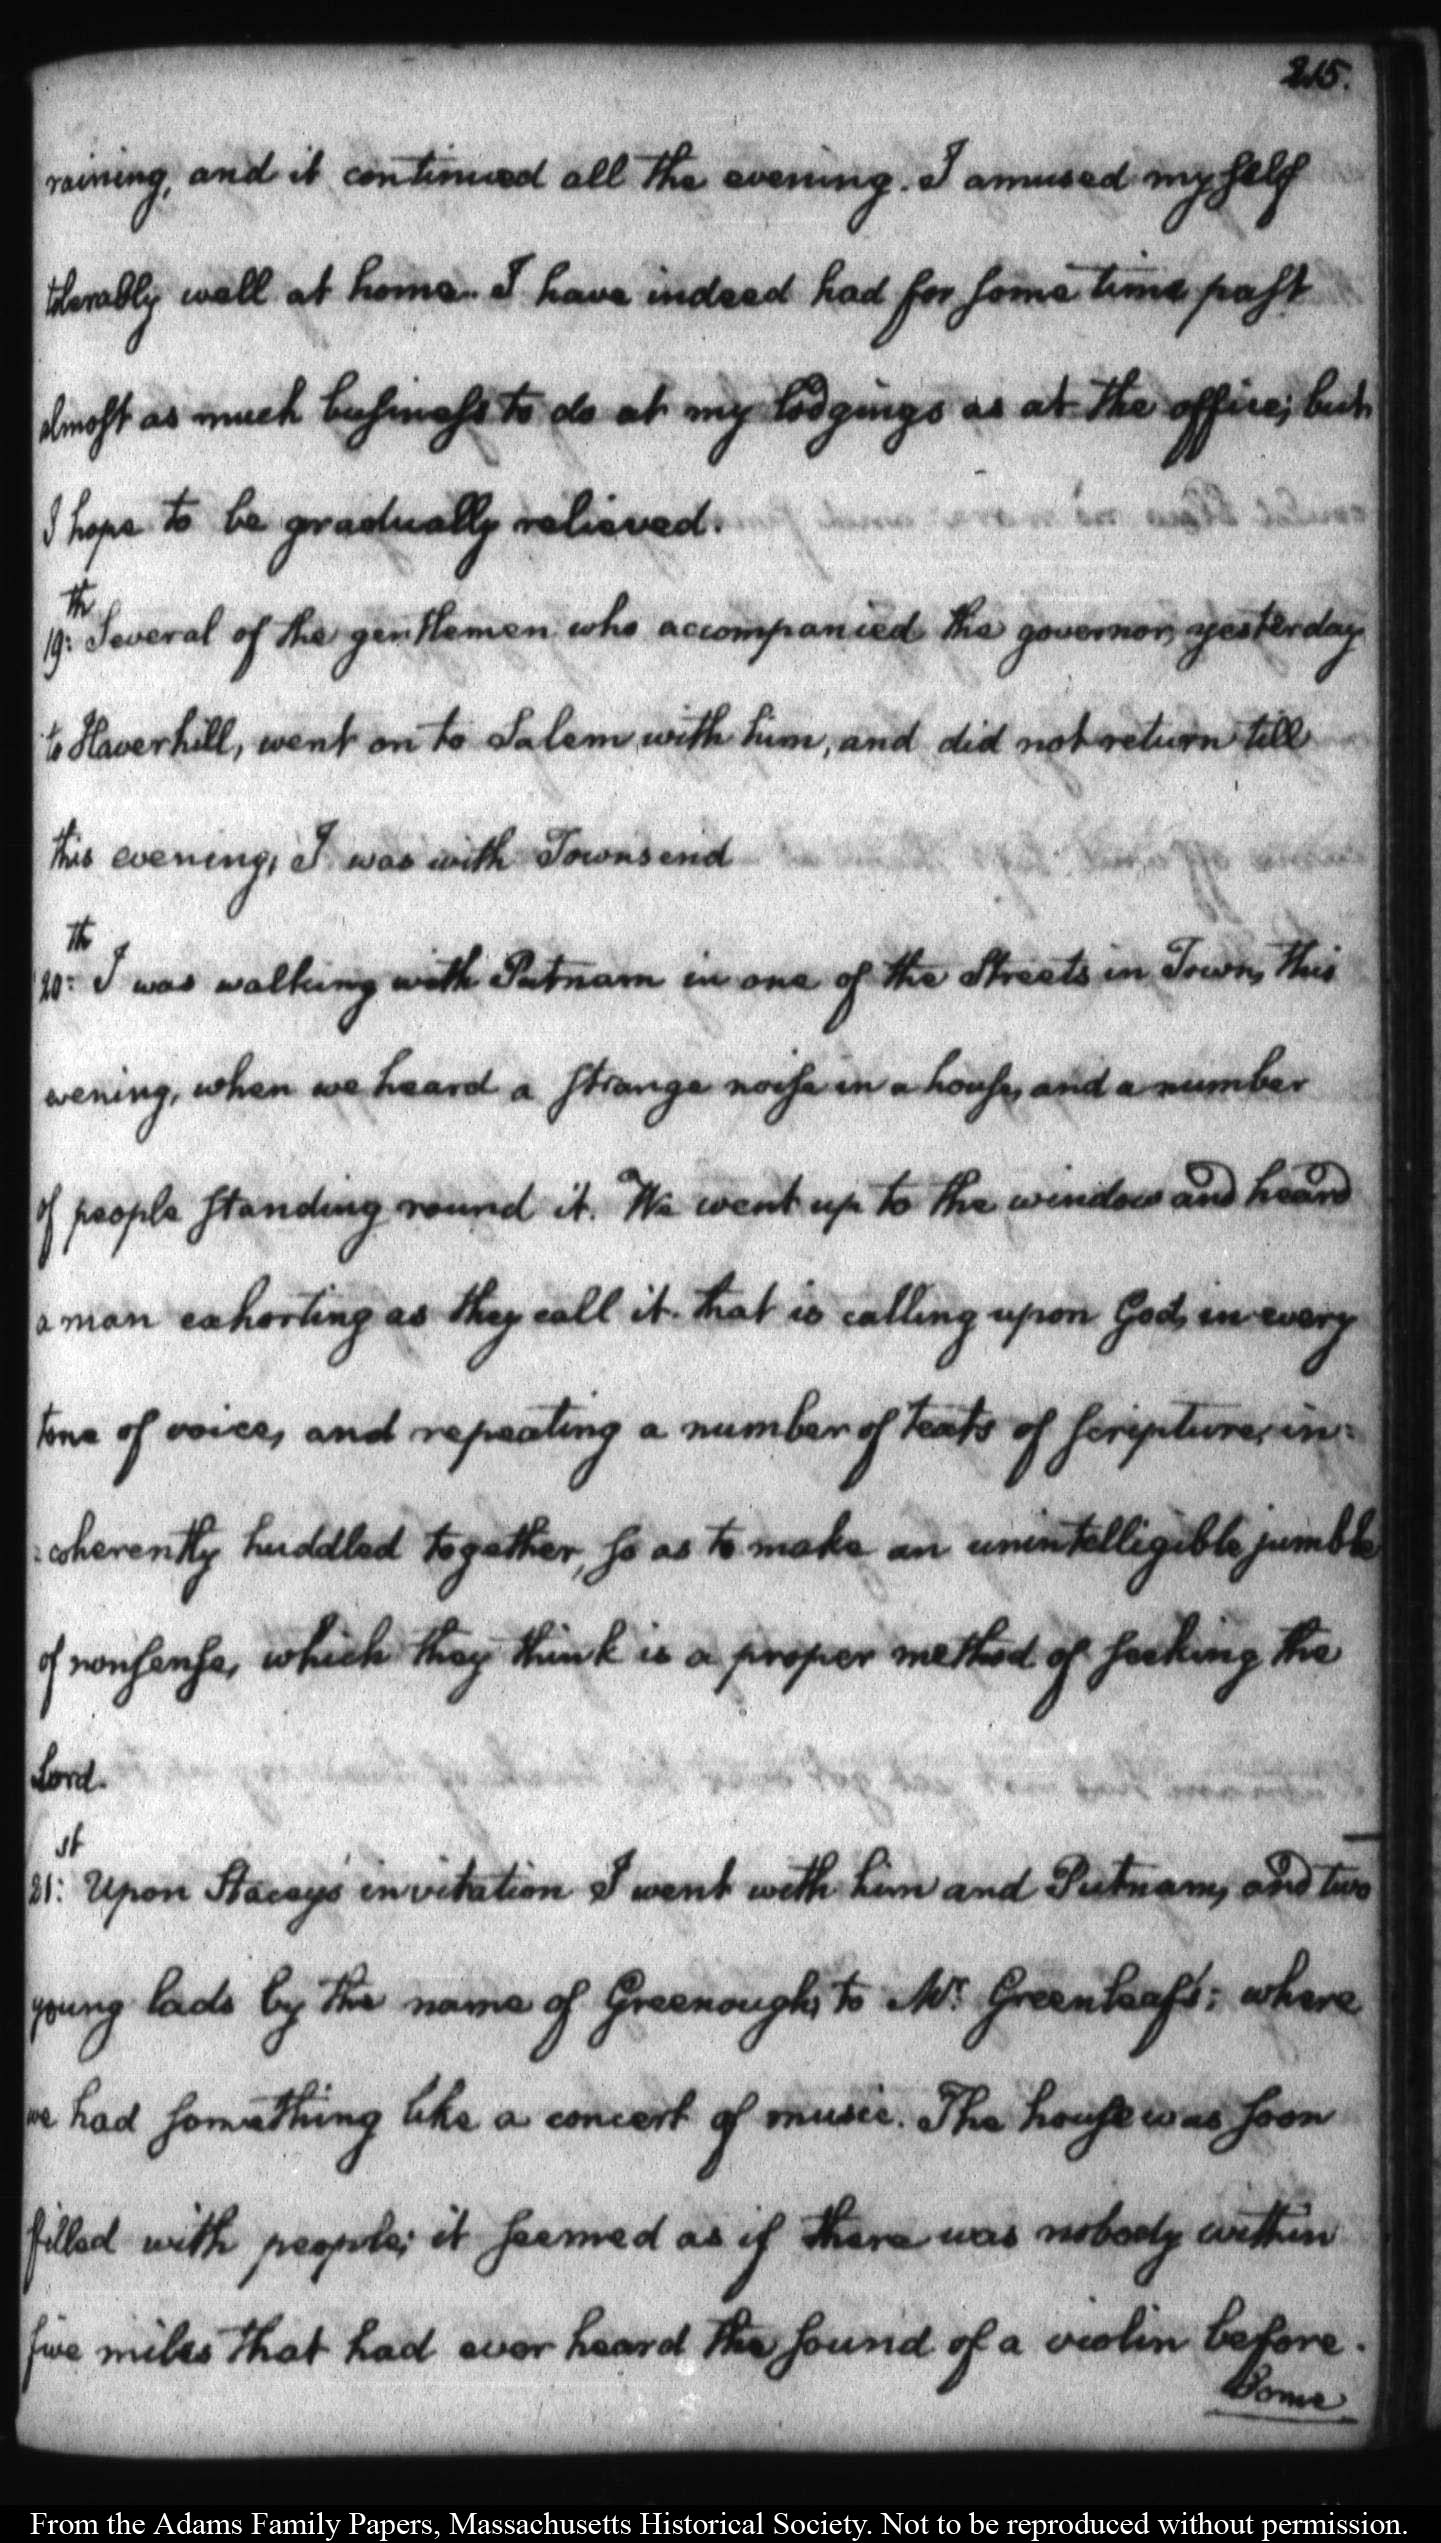 215.
raining, and it continued all the evening. I amused my self
tolerably well at home. I have indeed had for some time past
almost as much business to do at my lodgings as at the office; but
I hope to be gradually relieved.
19:th Several of the gentlemen who accompanied the governor, yesterday
to Haverhill, went on to Salem with him, and did not return till
this evening; I was with Townsend
20:th I was walking with Putnam in one of the Streets in Town, this
evening, when we heard a strange noise in a house, and a number
of people standing round it. We went up to the window and heard
a man exhorting as they call it. that is calling upon God, in every
tone of voice, and repeating a number of texts of scripture, in:
:coherently huddled together, so as to make an unintelligible jumble
of nonsense, which they think is a proper method of seeking the
Lord.
21:st Upon Stacey's invitation I went with him and Putnam, and two
young lads by the name of Greenough, to Mr. Greenleaf's; where
we had something like a concert of music. The house was soon
filled with people; it seemed as if there was nobody within
five miles that had ever heard the sound of a violin before.
Some
From the Adams Family Papers, Massachusetts Historical Society. Not to be reproduced without permission.